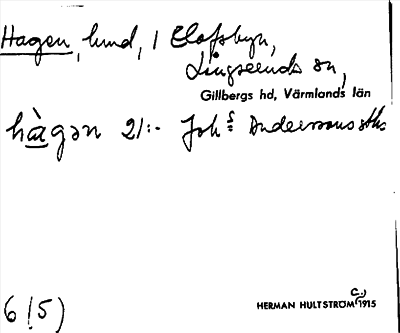 Hagen, lund, i Elofsbyn,
Långseruds sn,
Gillbergs hd, Värmlands län
hàgən 21:- Joh:s Anderssons
c.,
6 (5) HERMAN HULTSTRÖM 1915